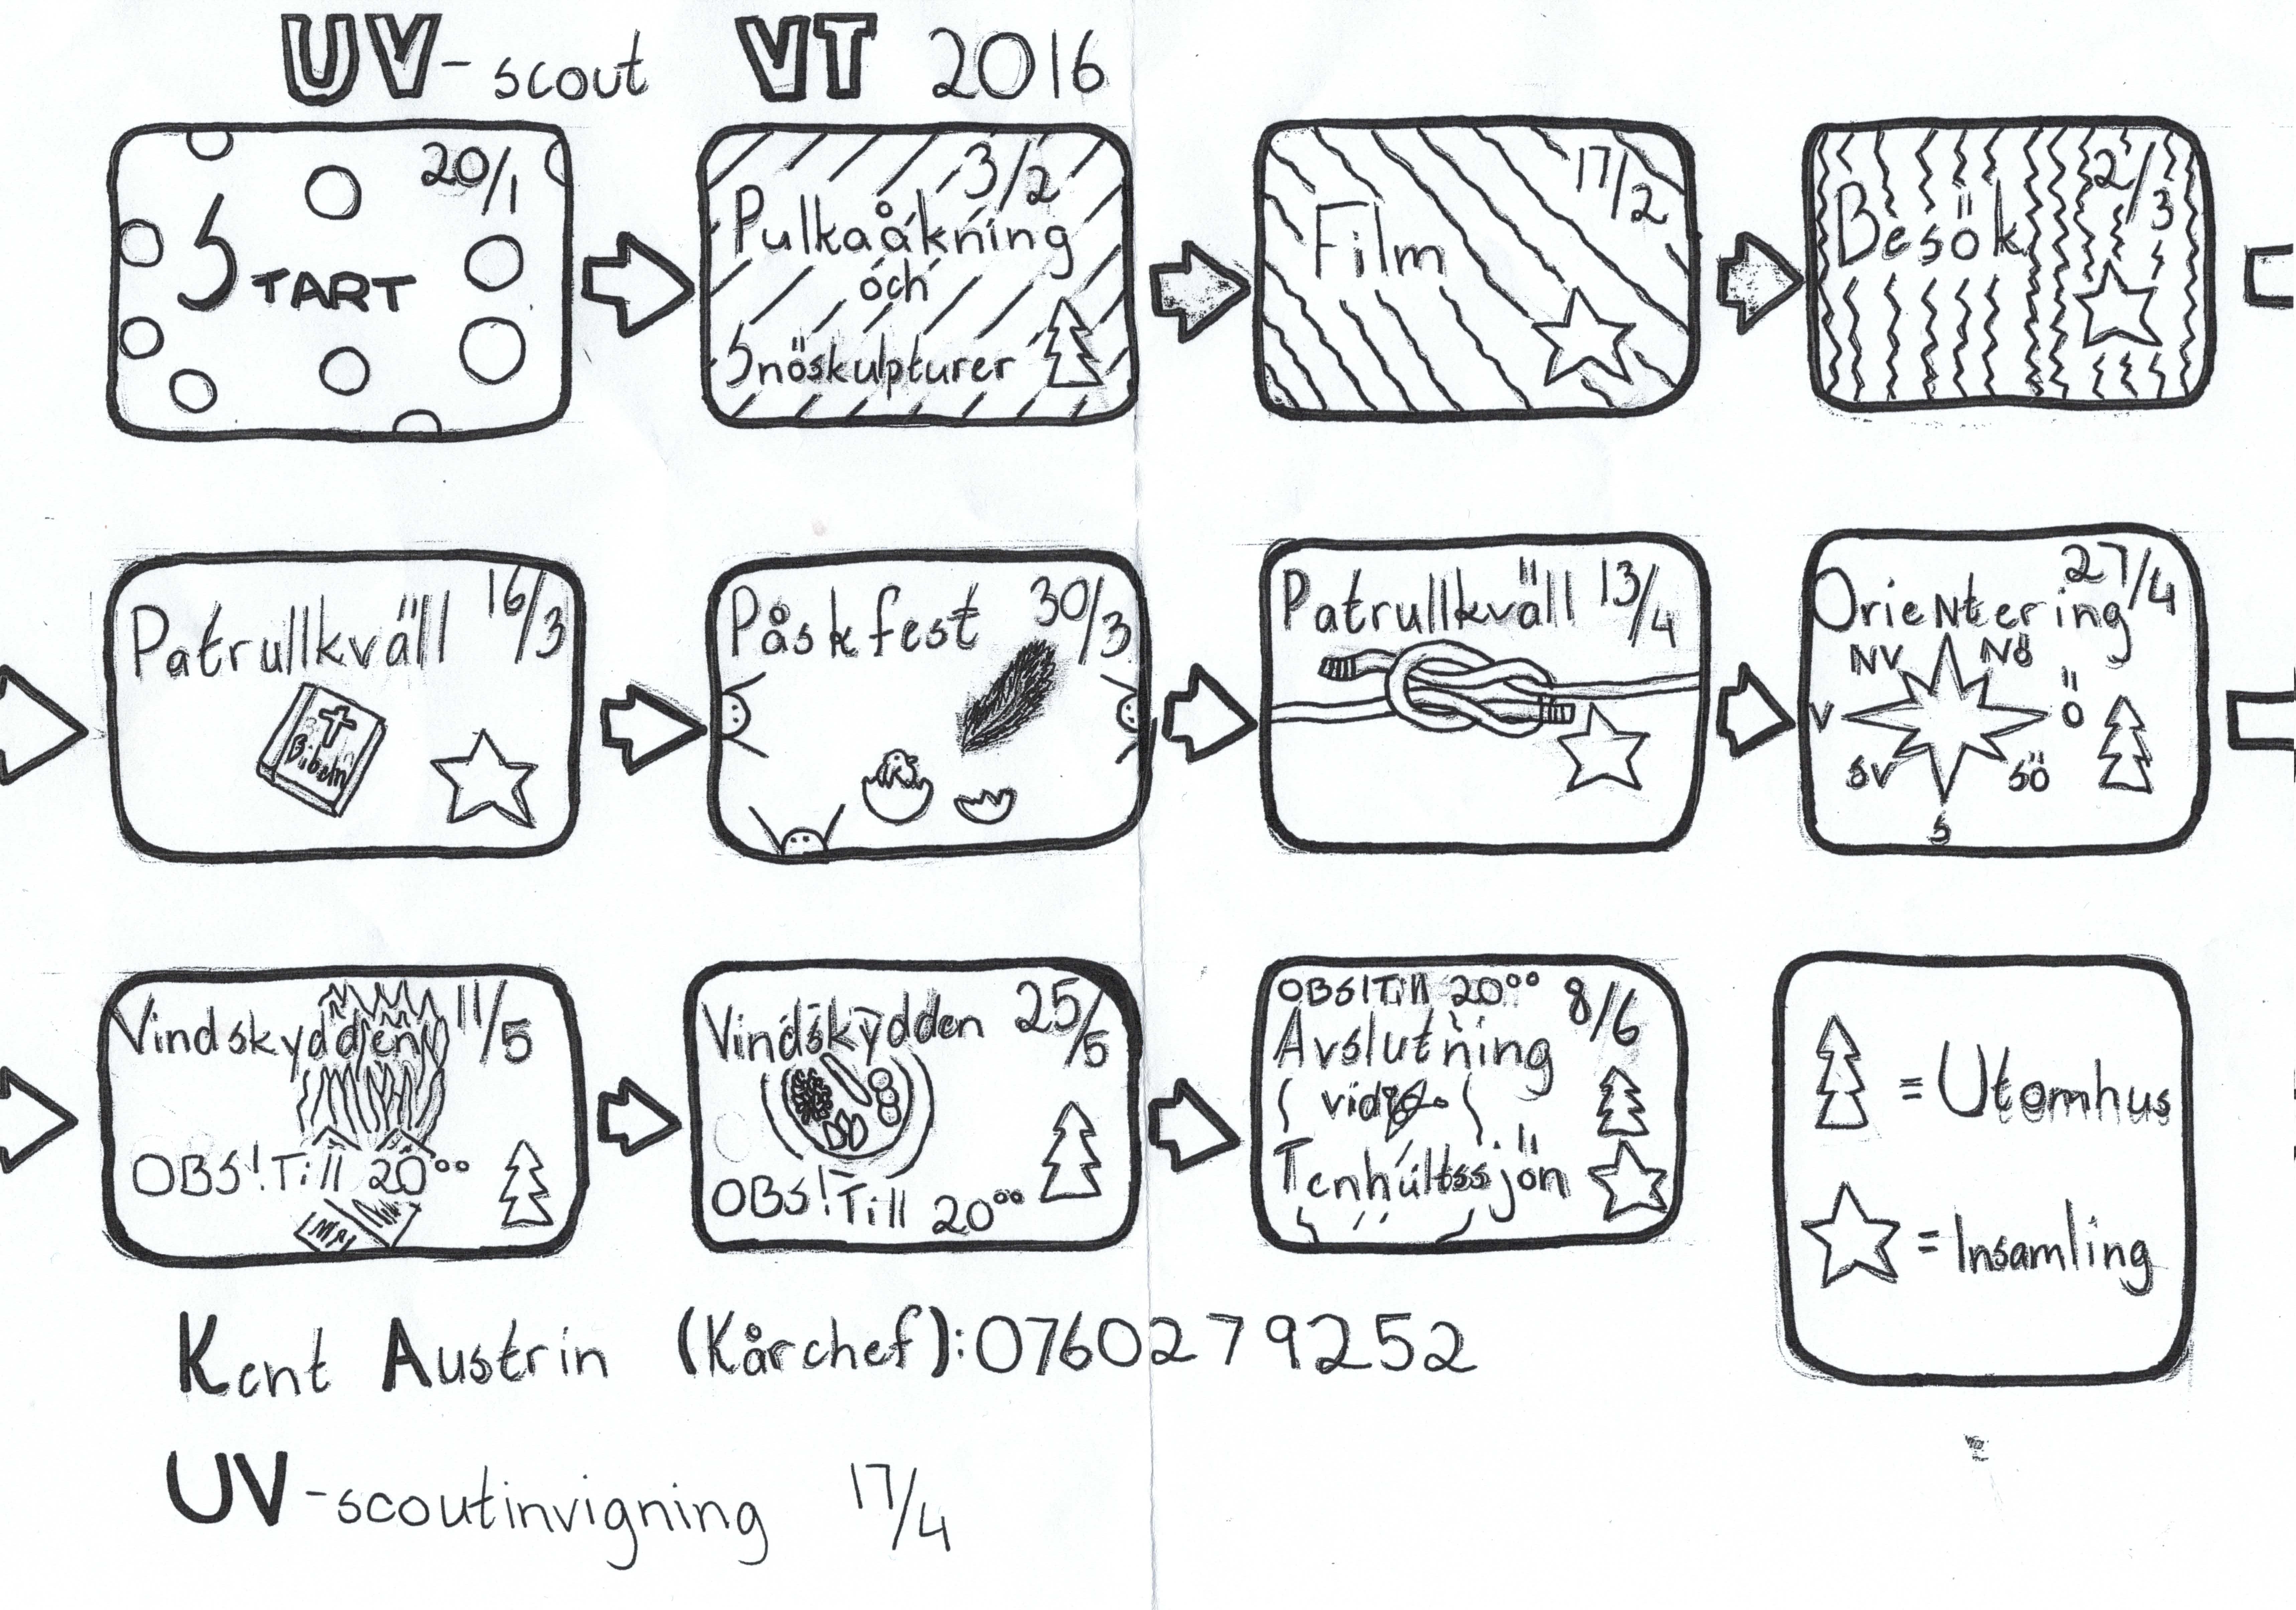 UV-scout VT 2016
20/1
START
3/2
Pulkaåkning
och
Snöskulpturer
17/2
Film
2/3
Besök
Patrullkväll 16/3
Bibeln
Påskfest 30/3
Patrullkväll 13/4
27/4
Orientering
NV NÖ
V Ö
SV SÖ
S
Vindskydden 11/5
OBS! Till 20⁰⁰
Vindskydden 25/5
OBS! Till 20⁰⁰
OBS! Till 20⁰⁰ 8/6
Avslutning
vid
Tenhultssjön
= Utomhus
= Insamling
Kent Austrin (Kårchef): 0760279252
UV-scoutinvigning 17/4